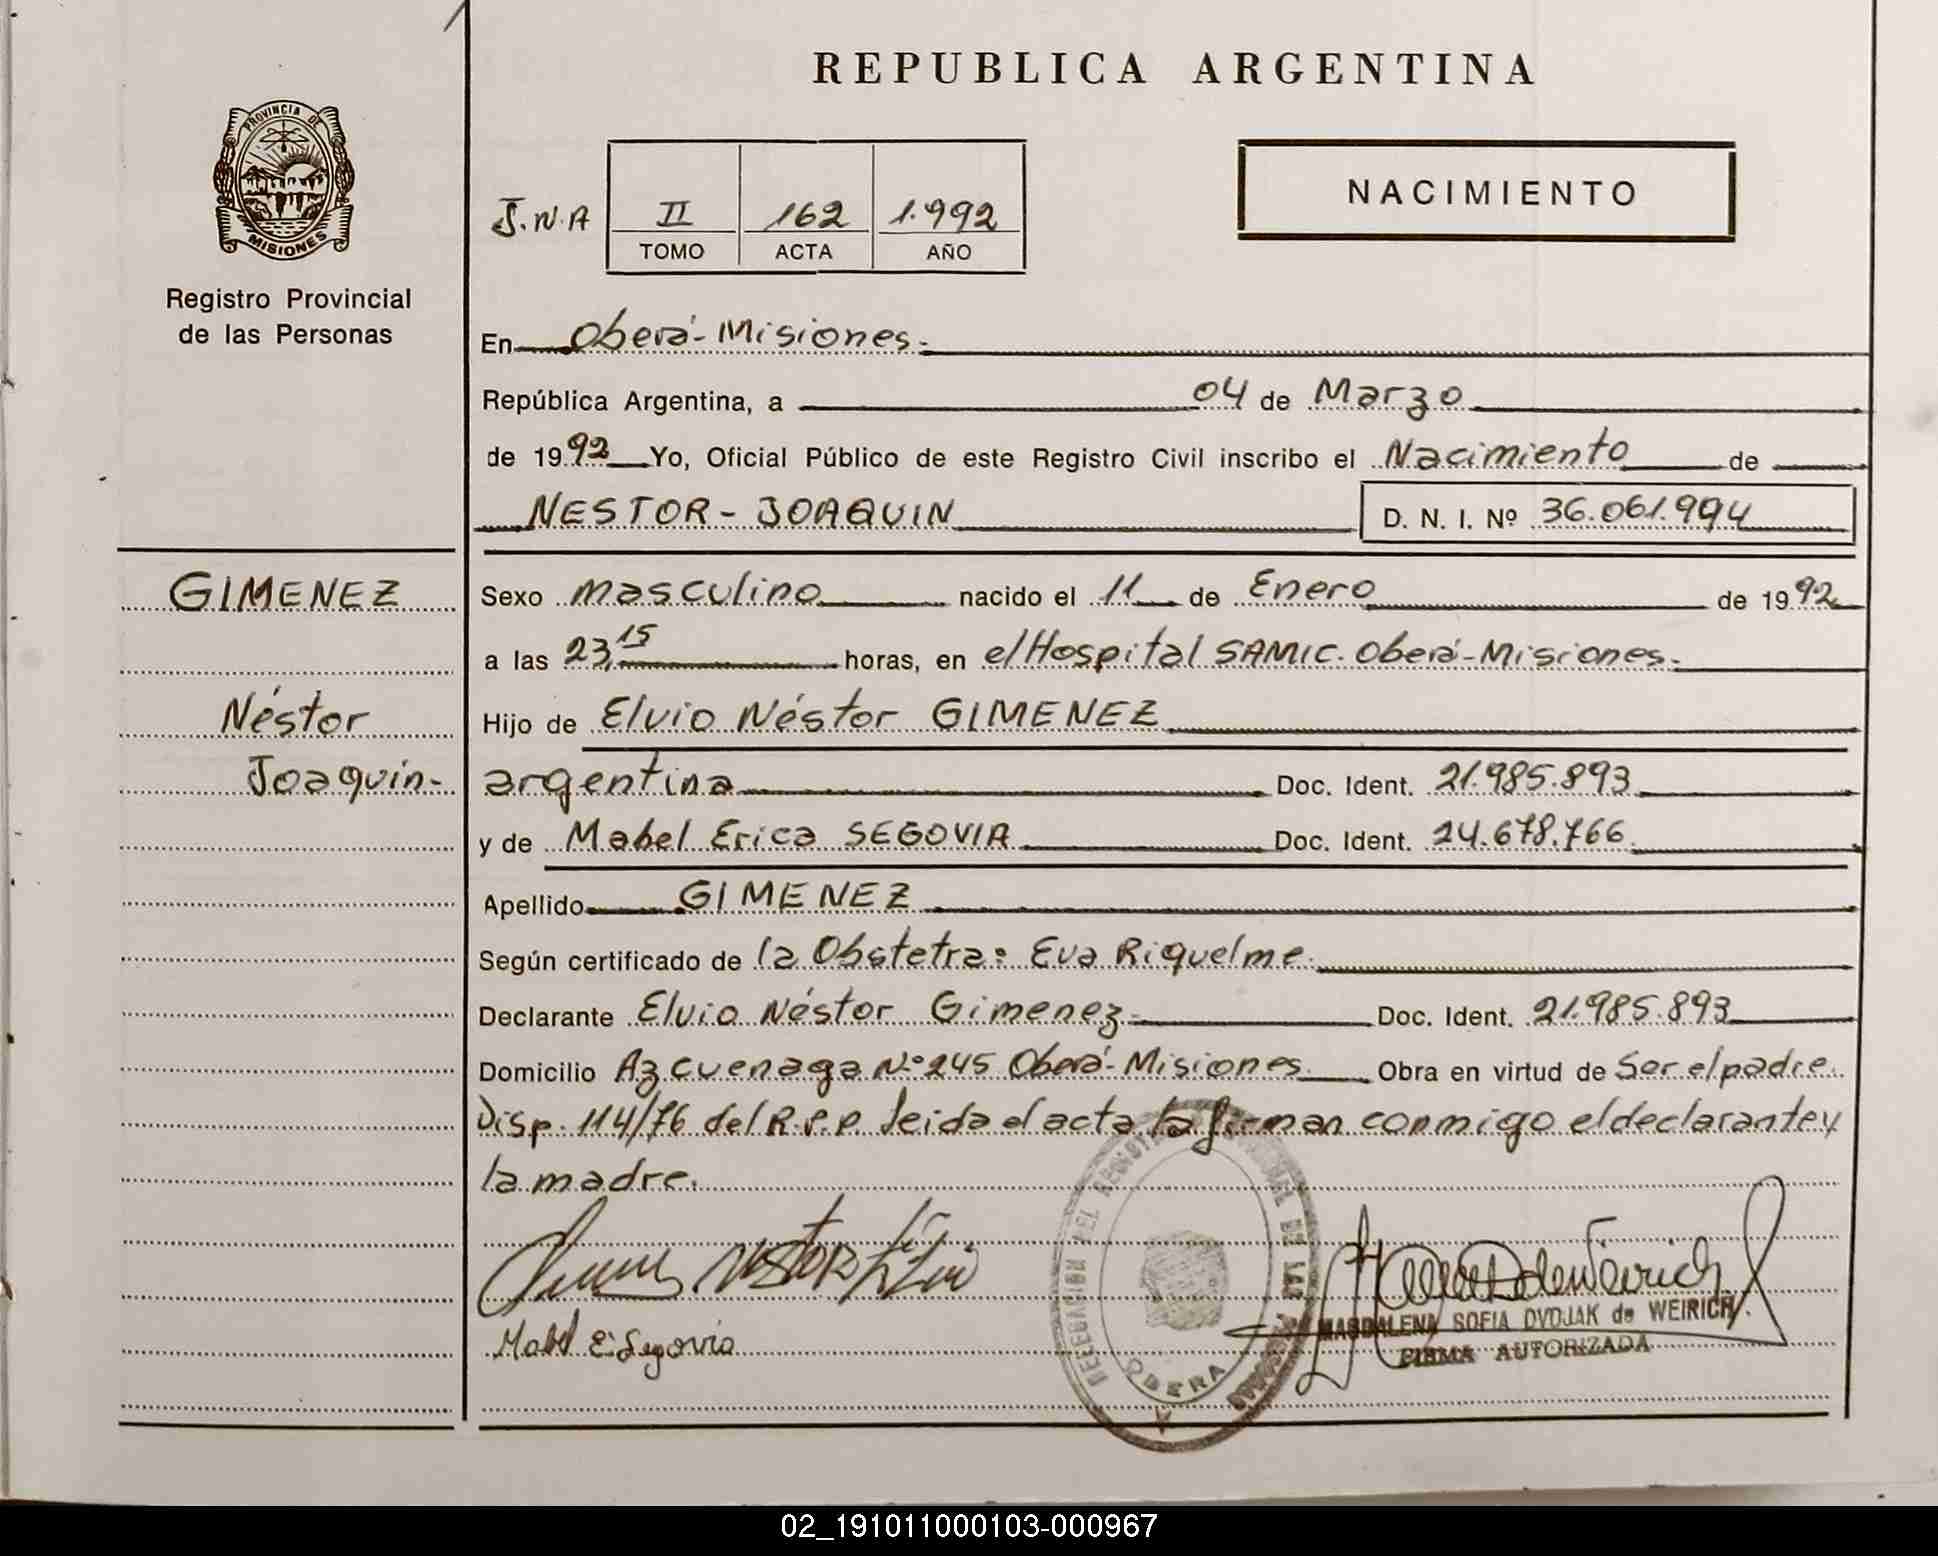 REPUBLICA ARGENTINA
PROVINCIA DE
MISIONES
Registro Provincial
de las Personas
J.N.A
II 162 1.992
TOMO ACTA AÑO
NACIMIENTO
En Oberá-Misiones.
República Argentina, a 04 de Marzo
de 1992 Yo, Oficial Público de este Registro Civil inscribo el Nacimiento de
NESTOR-JOAQUIN D. N. I. Nº 36.061.994
GIMENEZ
Néstor
Joaquín-
Sexo masculino nacido el 11 de Enero de 1992
a las 23,15 horas, en el Hospital SAMIC. Oberá-Misiones.
Hijo de Elvio Néstor GIMENEZ
argentina Doc. Ident. 21.985.893
y de Mabel Erica SEGOVIA Doc. Ident. 24.678.766
Apellido GIMENEZ
Según certificado de la Obstetra: Eva Riquelme.
Declarante Elvio Néstor Gimenez Doc. Ident. 21.985.893
Domicilio Azcuenaga N.º 245 Oberá-Misiones Obra en virtud de Ser el padre.
Disp. 114/76 del R.P.P. leida el acta la firman conmigo el declarante y
la madre.
NESTOR Elvio
Mabel E. Segovia
DELEGACION DEL REGISTRO DE LAS
OBERA
MAGDALENA SOFIA DVOJAK de WEIRICH
FIRMA AUTORIZADA
02_191011000103-000967